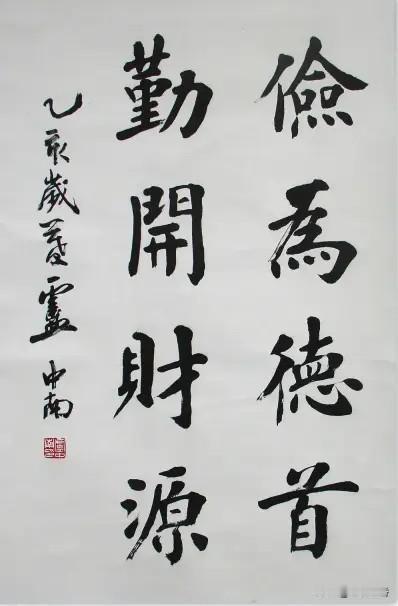 儉為德首
勤開財源
乙亥歲夏盧中南